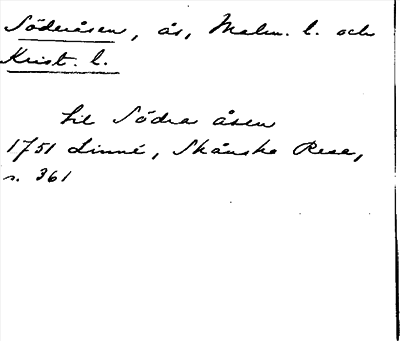 Söderåsen, ås, Malm. l. och
Krist. l.
till Södra åsen
1751 Linné, Skånska Resa,
s. 361